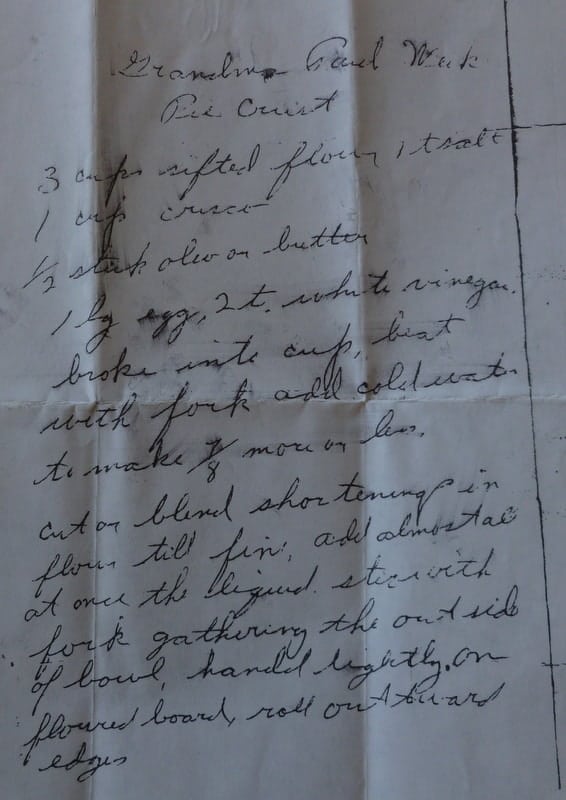 Grandma Paul
Pie Crust
3 cups sifted flour, 1 t salt
1 cup crisco
1/2 stick oleo or butter
1 lg egg, 2 t. white vinegar
broke into cup, beat
with fork add cold water
to make 7/8 more or less
cut or blend shortening in
flour till fine, add almost al
at once the liquid. stir with
fork gathering the out side
of bowl, handd lightly. on
floured board, roll out tward
edges